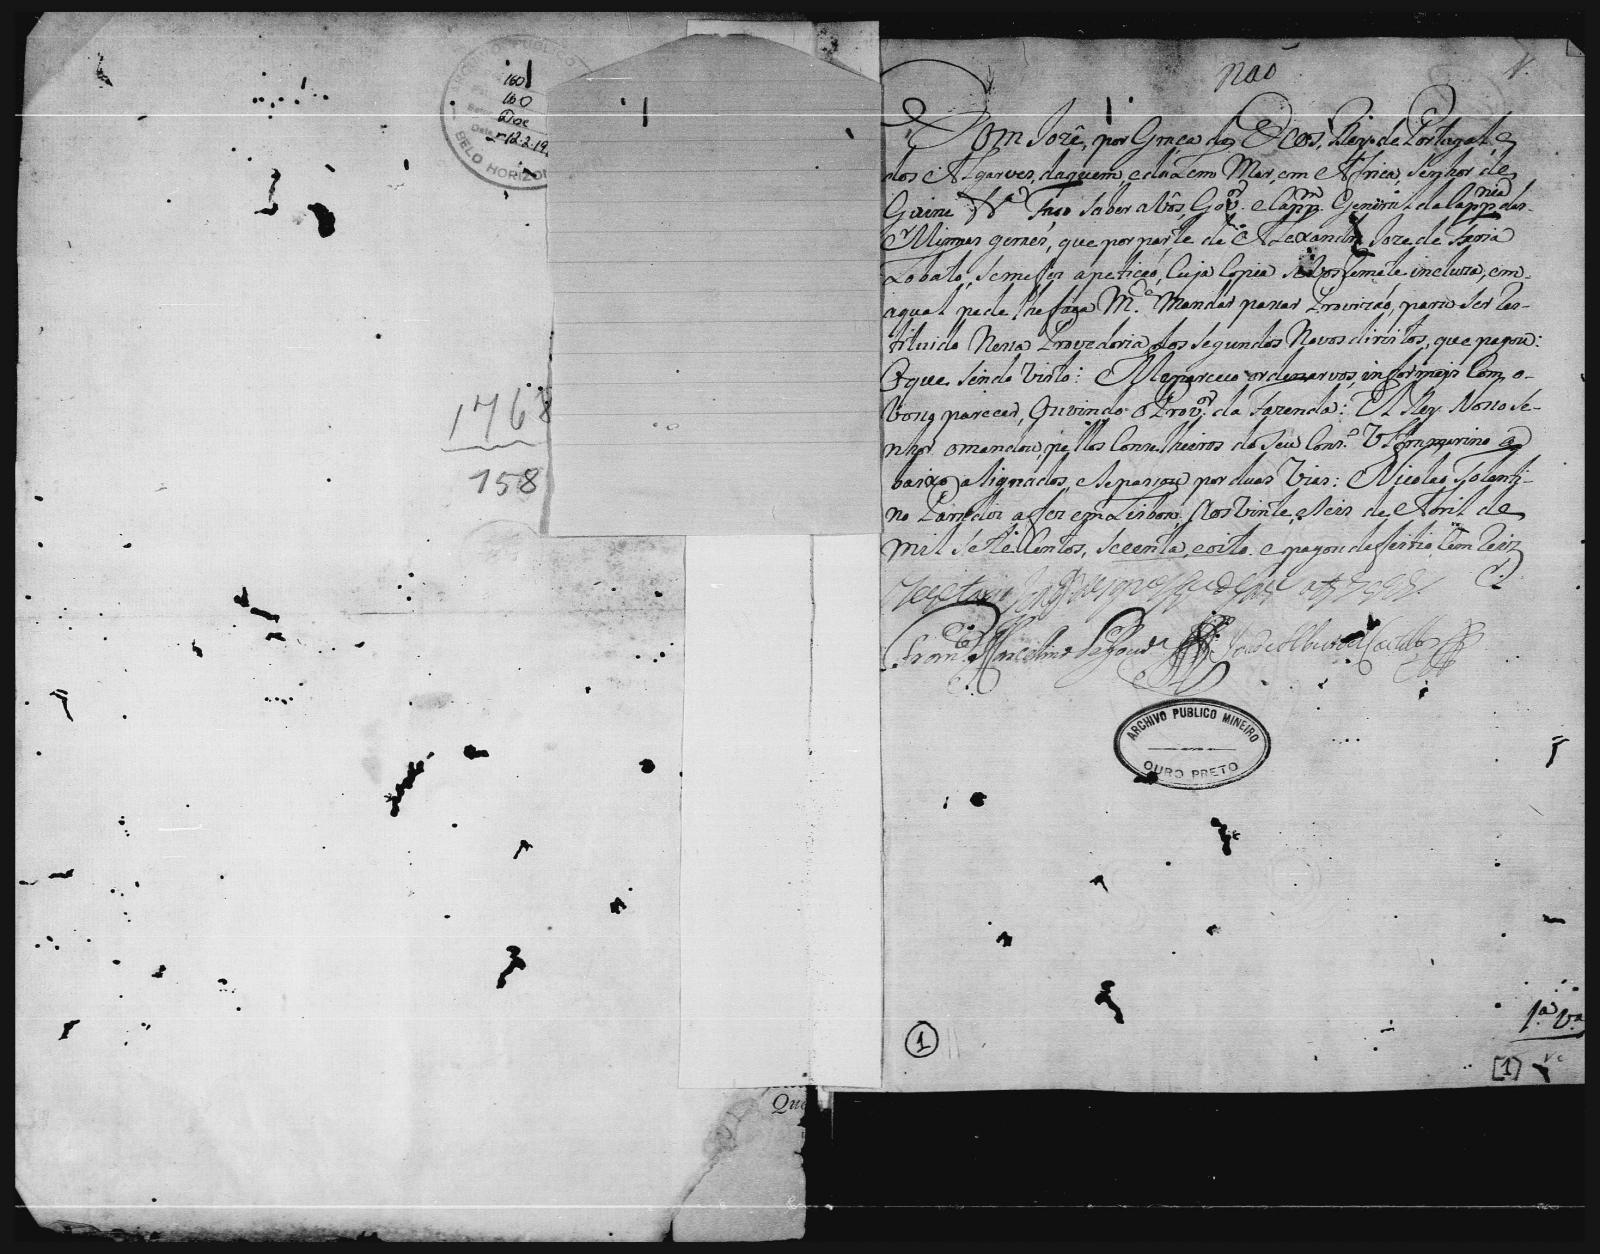 ARCHIVO PUBLICO
BELO HORIZO
160
160
Doc
12-2-19
1768
158
Que
Não
Dom Jozé, por Graça de Deos, Rey de Portugal, e
dos Algarves, daquem, e da Lem Mar, em Africa, Senhor de
Guine &ª Faço Saber a Vós, Govor. e Cappam. General da Cappnia das
Minas geraes, que por parte de Alexandre Joze de Faria
Lobato, Se me fez a petição, Cuja Copia Se Vos Remete incluza, em
a qual pede lhe faça M.ce Mandar passar Provizão, para Ser Res-
tituido Nessa Provedoria dos Segundos Novos direitos, que pagou:
O que Sendo Visto: Me pareceo ordenarvos, informeis Com o
Vosso parecer, Ouvindo o Provor. da Fazenda: El Rey Nosso Se-
nhor o mandou, pellos Conselheiros do Seu Cons.º Ultramarino a
baixo aSignados, e Se passou por duas Vias:
no a fez em Lisboa, Aos Vinte, e Seis de Abril de
mil Sette Centos, Secenta, e oito. e pagou de feitio Cem Reis
Franco. Marcelino
ARCHIVO PUBLICO MINEIRO
OURO PRETO
1
1.ª V.ª
[1]